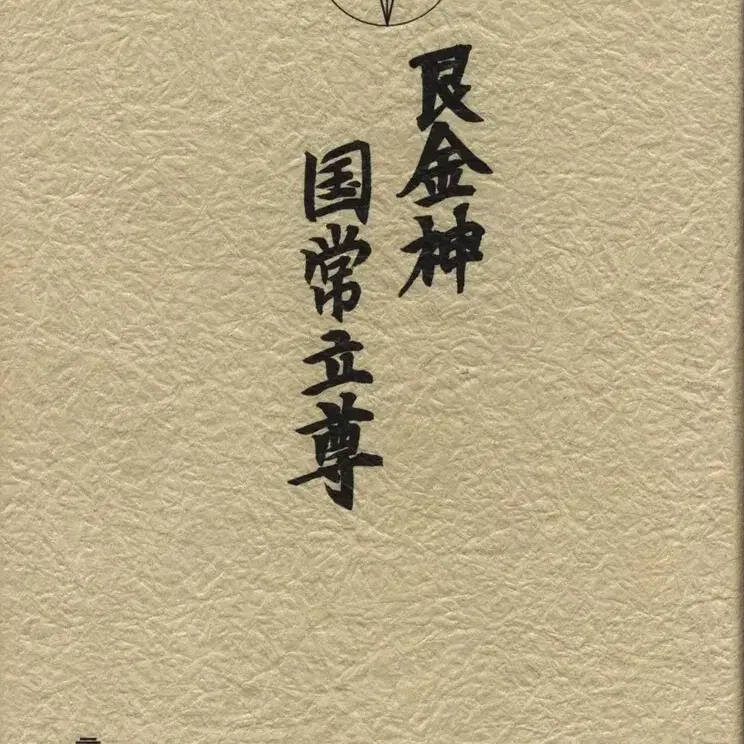 艮金神
国常立尊